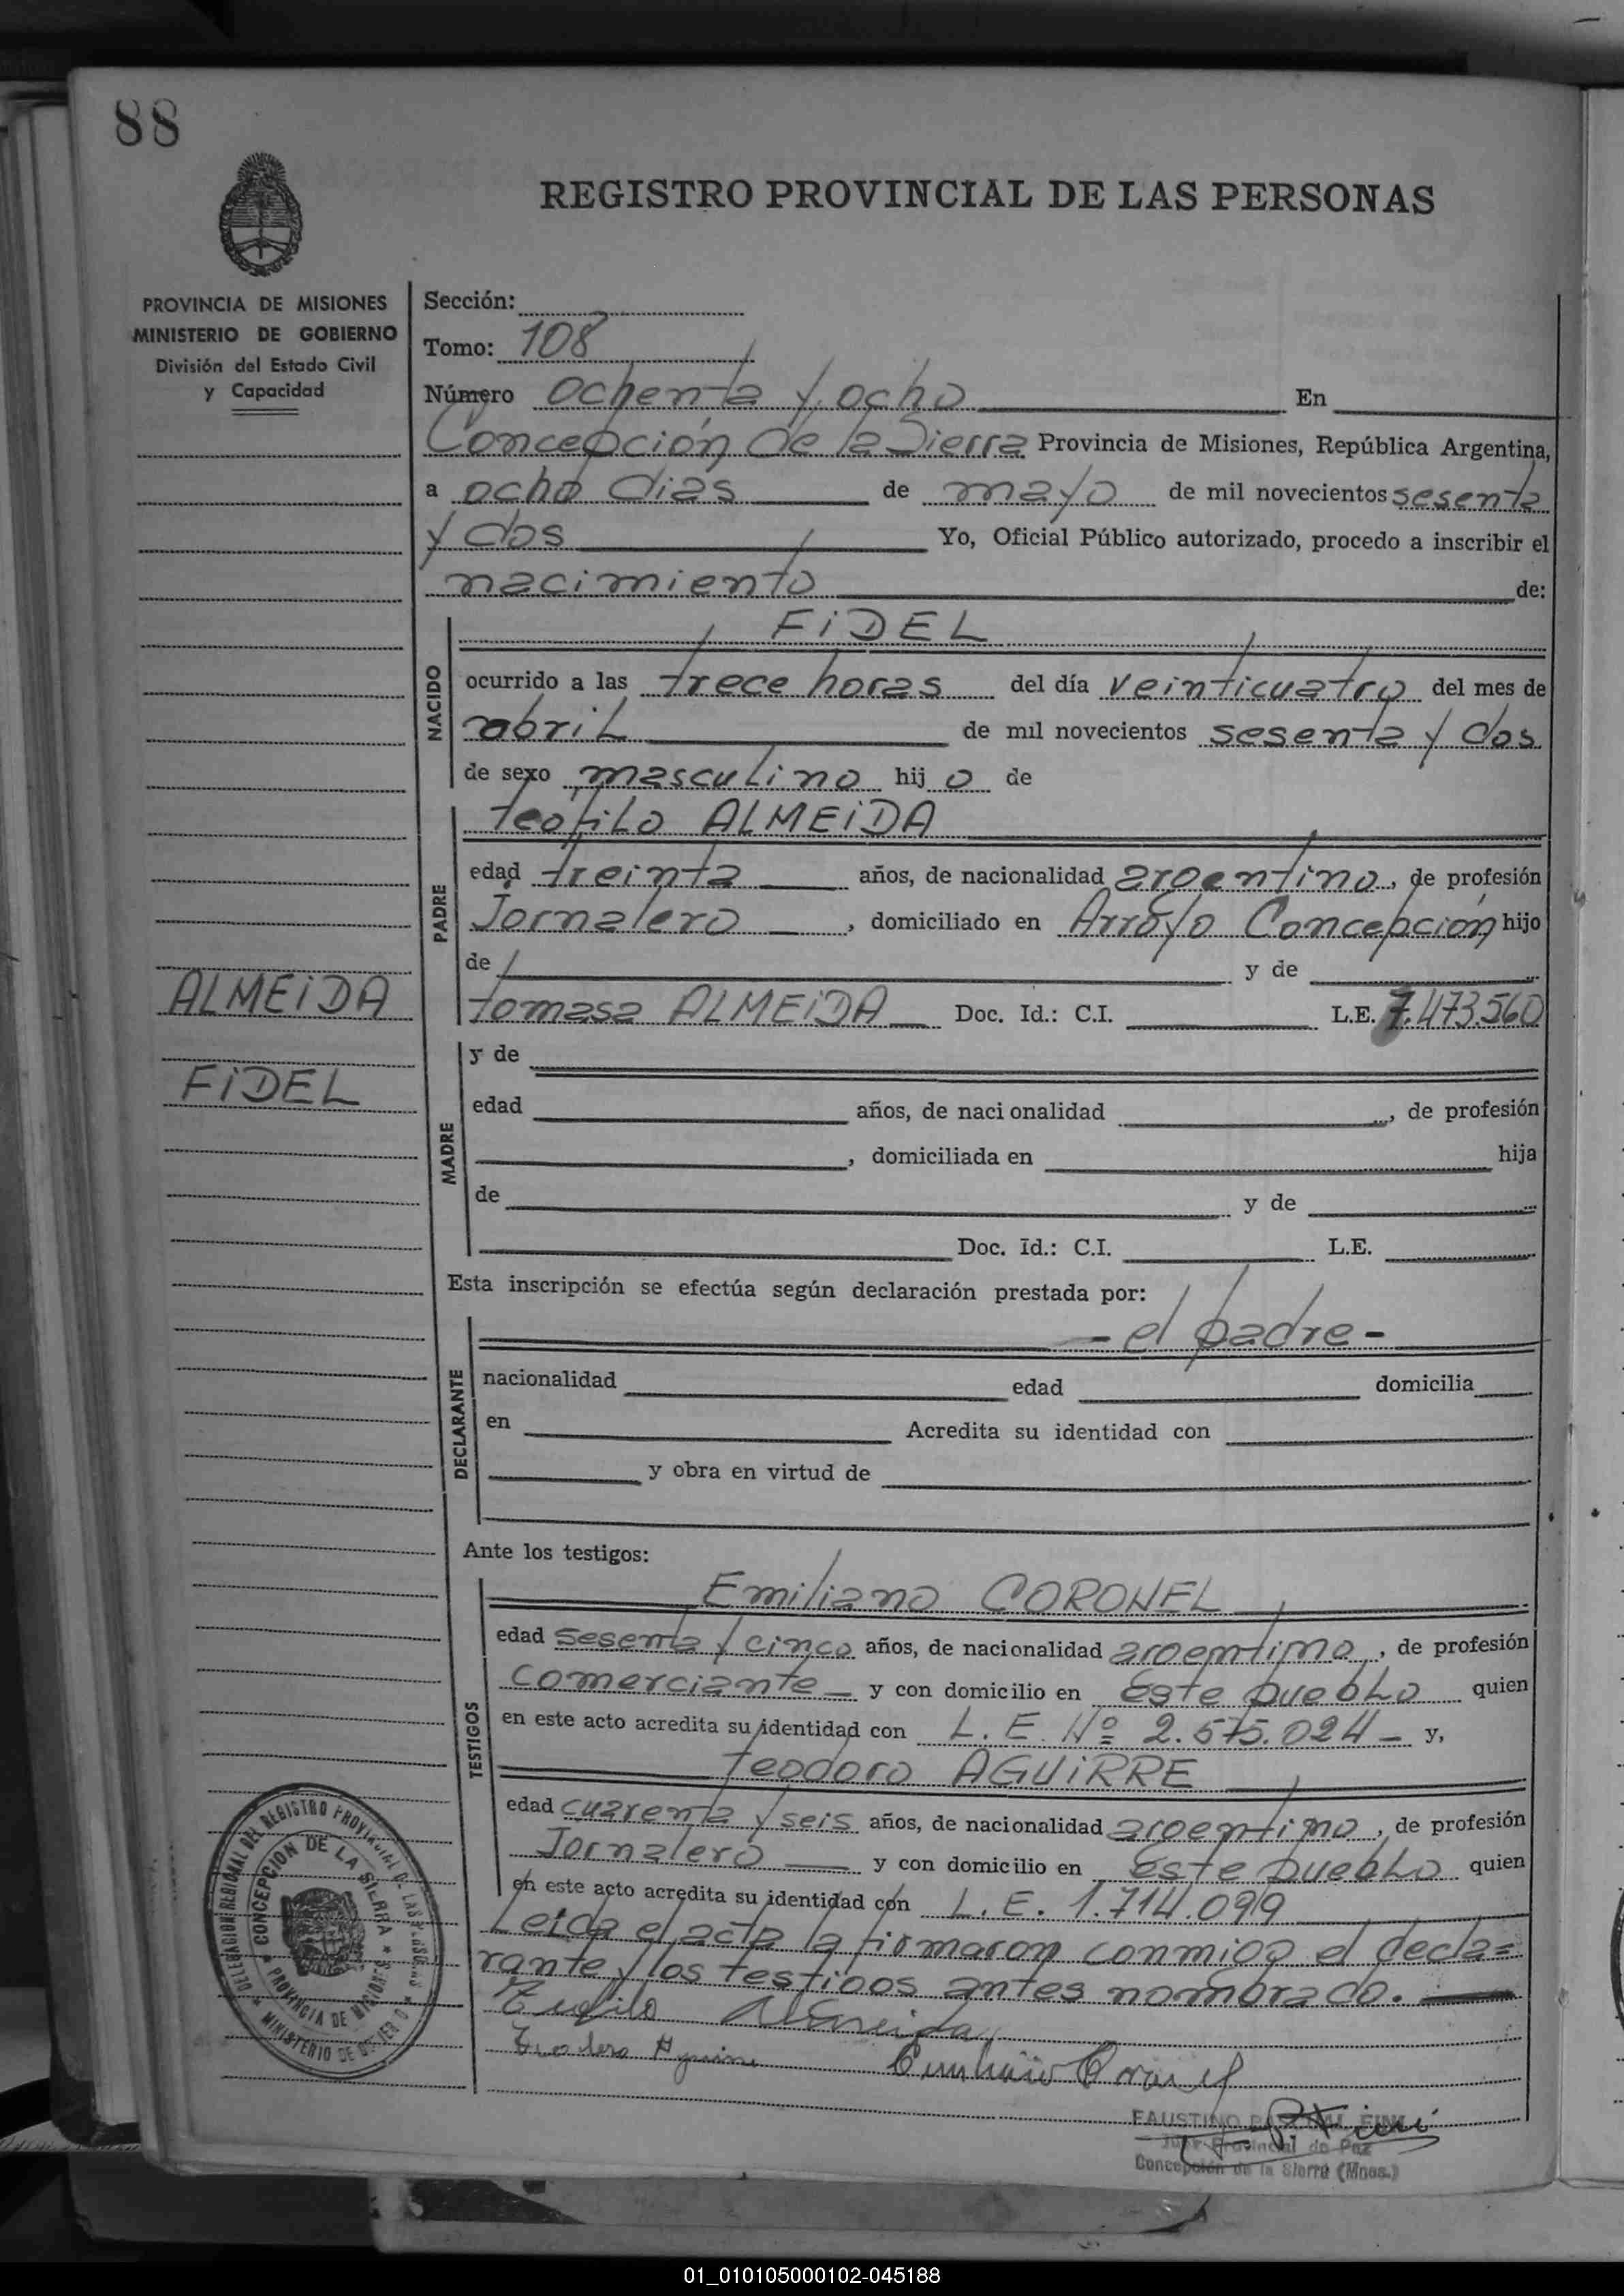 88
REGISTRO PROVINCIAL DE LAS PERSONAS
PROVINCIA DE MISIONES
MINISTERIO DE GOBIERNO
División del Estado Civil
y Capacidad
ALMEIDA
FIDEL
Sección:
Tomo: 108
Número ochenta y ocho En
Concepción de la Sierra Provincia de Misiones, República Argentina,
a ocho dias de mayo de mil novecientos sesenta
y dos Yo, Oficial Público autorizado, procedo a inscribir el
nacimiento de:
NACIDO
FIDEL
ocurrido a las trece horas del día veinticuatro del mes de
abril de mil novecientos sesenta y dos
de sexo masculino hij o de
PADRE
Teofilo ALMEIDA
edad treinta años, de nacionalidad argentino, de profesión
Jornalero, domiciliado en Arroyo Concepción hijo
de y de
tomasa ALMEIDA Doc. Id.: C.I. L.E. 7.473.560
MADRE
y de
edad años, de nacionalidad , de profesión
, domiciliada en hija
de y de
Doc. Id.: C.I. L.E.
Esta inscripción se efectúa según declaración prestada por:
DECLARANTE
- el padre -
nacionalidad edad domicilia
en Acredita su identidad con
y obra en virtud de
Ante los testigos:
TESTIGOS
Emiliano CORONEL
edad sesenta y cinco años, de nacionalidad argentino, de profesión
comerciante - y con domicilio en este pueblo quien
en este acto acredita su identidad con L. E. Nº 2.575.024 - y,
Teodoro AGUIRRE
edad cuarenta y seis años, de nacionalidad argentino, de profesión
Jornalero y con domicilio en este pueblo quien
en este acto acredita su identidad con L. E. 1.714.099
Leida el acta la firmaron conmigo el decla=
rante y los testigos antes nombrado.
Teofilo Almeida
Teodoro Aguirre Emiliano Coronel
FAUSTINO FINI
Juez Provincial de Paz
Concepción de la Sierra (Mnes.)
DELEGACION REGIONAL DEL REGISTRO PROVINCIAL DE LAS PERSONAS
MINISTERIO DE GOBIERNO
CONCEPCION DE LA SIERRA
PROVINCIA DE MISIONES
01_010105000102-045188